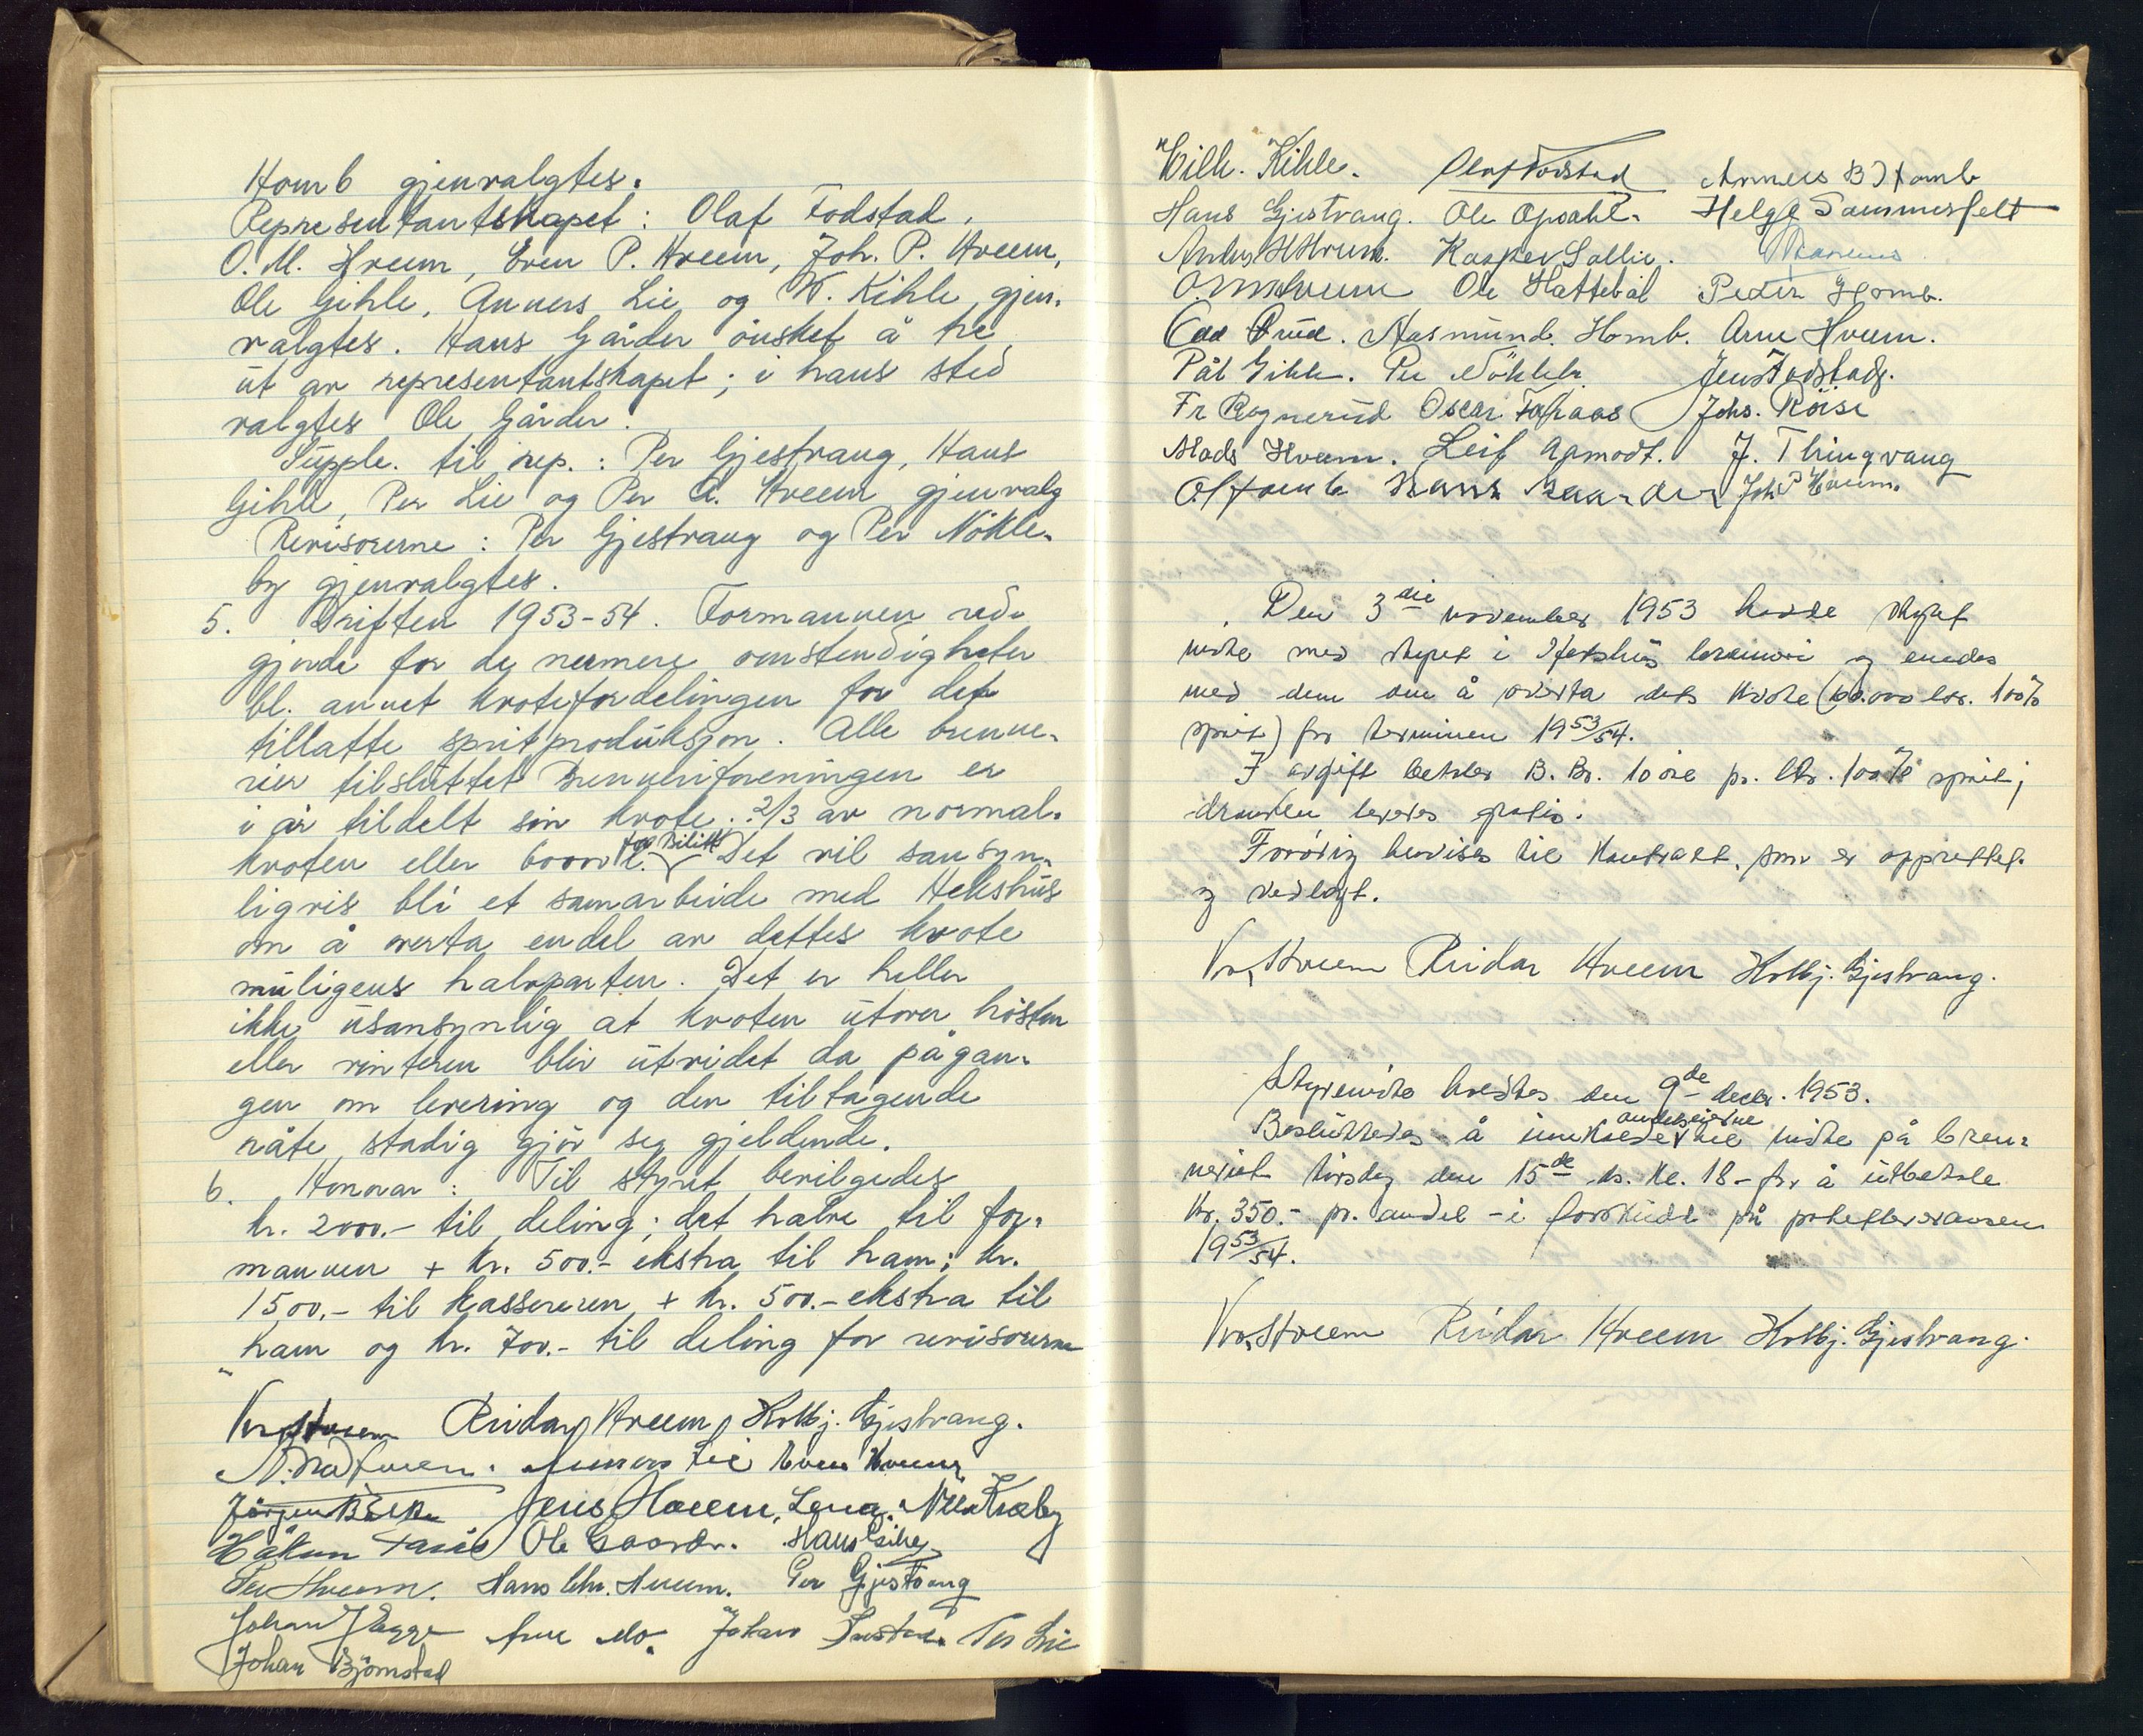 Homb gjenvalgtes.
Representantskapet: Olaf Fodstad,
O. M. Hveem, Even P. Hveem, Joh. P. Hveem,
Ole Gihle, Anners Lie og W. Kihle gjen-
valgtes. Hans Gårder ønsket å tre
ut av representantskapet; i hans sted
valgtes Ole Gårder.
Supple. til rep.: Per Gjestvang, Hans
Gihle, Per Lie og Per A. Hveem gjenvalg
Revisorerne: Per Gjestvang og Per Nökle-
by gjenvalgtes.
5. Driften 1953-54. Formannen rede
gjorde for de nærmere omstendigheter
bl. annet kvotefordelingen for det
tillatte spritproduksjon. Alle brenne-
rier tilsluttet Brenneriforeningen er
i år tildelt sin kvote: 2/3 av normal-
kvoten eller 60000 l. for Bilitt Det vil sansyn-
ligvis bli et samarbeide med Hekshus
om å overta endel av dettes kvote
muligens halvparten. Det er heller
ikke usansynlig at kvoten utover hösten
eller vinteren blir utvidet da pågan-
gen om levering og den tiltagende
råte stadig gjör seg gjeldende.
6. Honorar: Til styret bevilgedes
kr. 2000.- til deling; det halve til for-
mannen + kr. 500.- ekstra til ham; kr.
1500.- til kassereren + kr. 500.- ekstra til
ham og kr. 700.- til deling for revisorerne
Hveem Reidar Hveem Kolbj. Gjestvang.
Anners Lie Even Hveem
Jörgen Jens Hveem, Lena. Nils Kræby
Håkon Ole Gaarder. Hans Gihle
Per Hveem. Hans Chr. Hveem. Per Gjestvang
Johan Arne Mo. Johan Per Lie
Johan Björnstad
Wilh. Kihle. Olaf Fodstad Anners B Homb
Hans Gjestvang. Ole Opsahl. Helge Sommerfelt
Anders H Hveem. Kasper Sollie.
O M Hveem Ole Hattebøl Peder Homb.
Odd Prüd. Aasmund Homb. Arne Hveem.
Pål Gihle. Per Nökleby Jens Fodstad.
Fr Rognerud Oscar Johs. Röise
Mads Hveem. Leif Apmodt. J. Thingvang
O Homb Hans Gaarder Joh P Hveem.
Den 3die november 1953 hadde styret
möte med styret i Hekshus brenneri og enedes
med dem om å overta dets kvote (60.000 ltr. 100%
sprit) for terminen 1953/54.
I avgift betaler B. Br. 10 öre pr. ltr. 100% sprit;
dranken leveres gratis.
Forövrig henvises til kontrakt, som er opprettet
og vedlagt.
Hveem Reidar Hveem Kolbj. Gjestvang.
Styremöte holdtes den 9de decbr. 1953.
Besluttedes å innkalde andelseierne til möte på bren-
neriet tirsdag den 15de ds. kl. 18 - for å utbetale
kr. 350.- pr. andel - i forskudd på potetleveransen
1953/54.
Hveem Reidar Hveem Kolbj. Gjestvang.